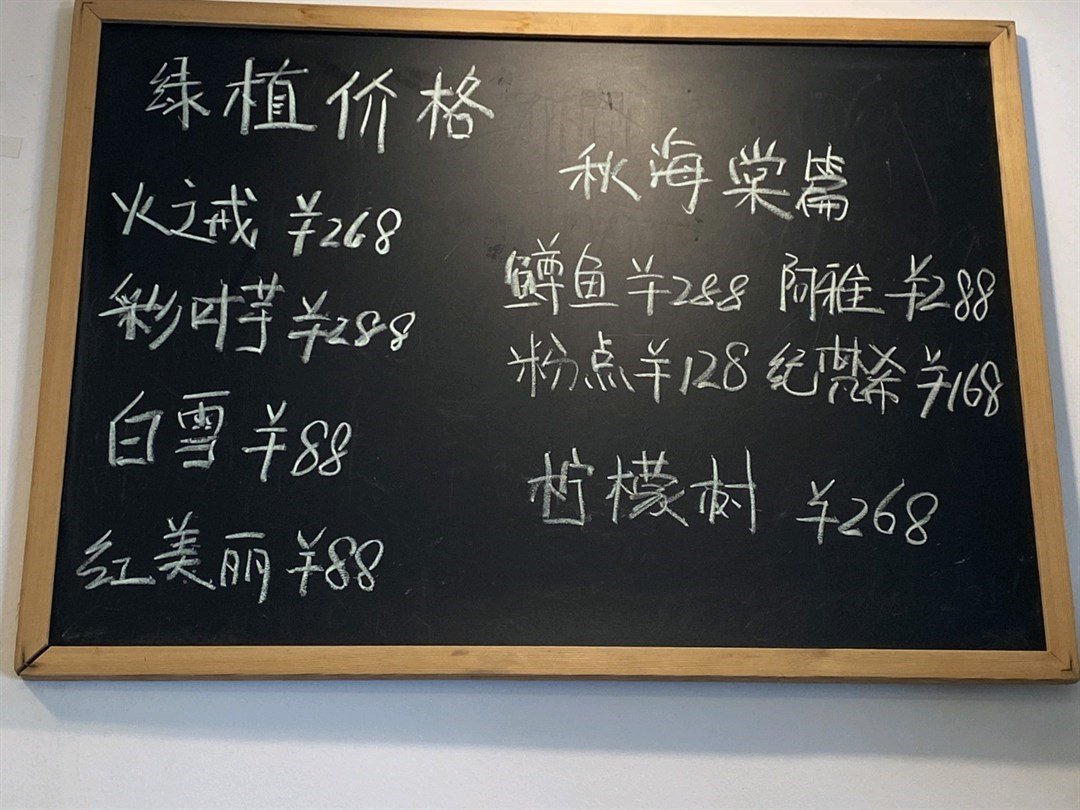 绿植价格
火之戒 ¥268
彩叶芋 ¥288
白雪 ¥88
红美丽 ¥88
秋海棠篇
鳟鱼 ¥288 阿雅 ¥288
粉点 ¥128 纪梵希 ¥168
柠檬树 ¥268